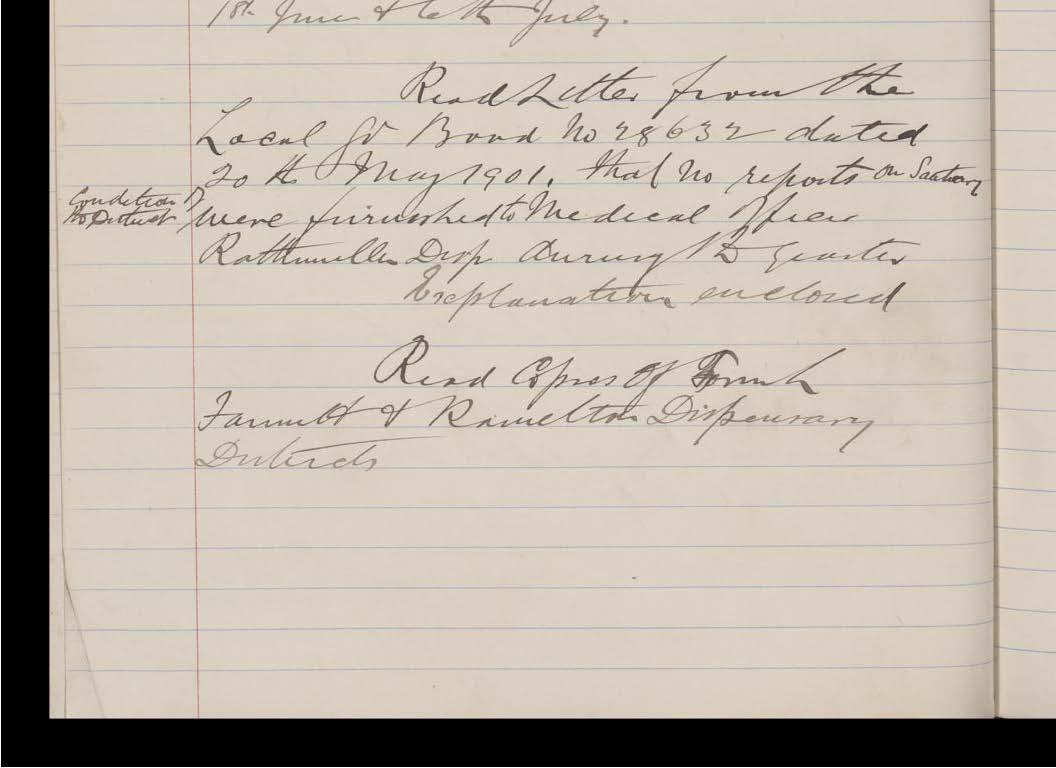 1st June & 6th July.
Read Letter from the
Local Gt Board No 28632 dated
20th May 1901. that no reports on Sanitary
Condition of
the District were furnished to Medical Officer
Rathmullen Disp during the quarter
Explanation enclosed
Read Copies of Form L
Fannett & Ramelton Dispensary
Districts